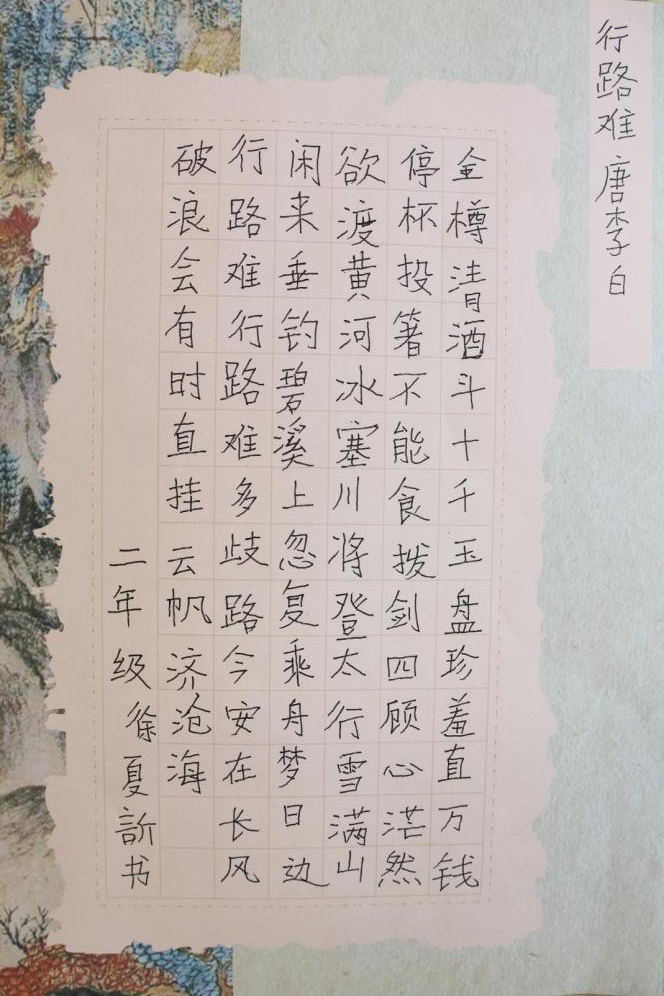 行路难 唐 李白
金樽清酒斗十千玉盘珍羞直万钱
停杯投箸不能食拨剑四顾心茫然
欲渡黄河冰塞川将登太行雪满山
闲来垂钓碧溪上忽复乘舟梦日边
行路难行路难多歧路今安在长风
破浪会有时直挂云帆济沧海
二年级徐夏訢书